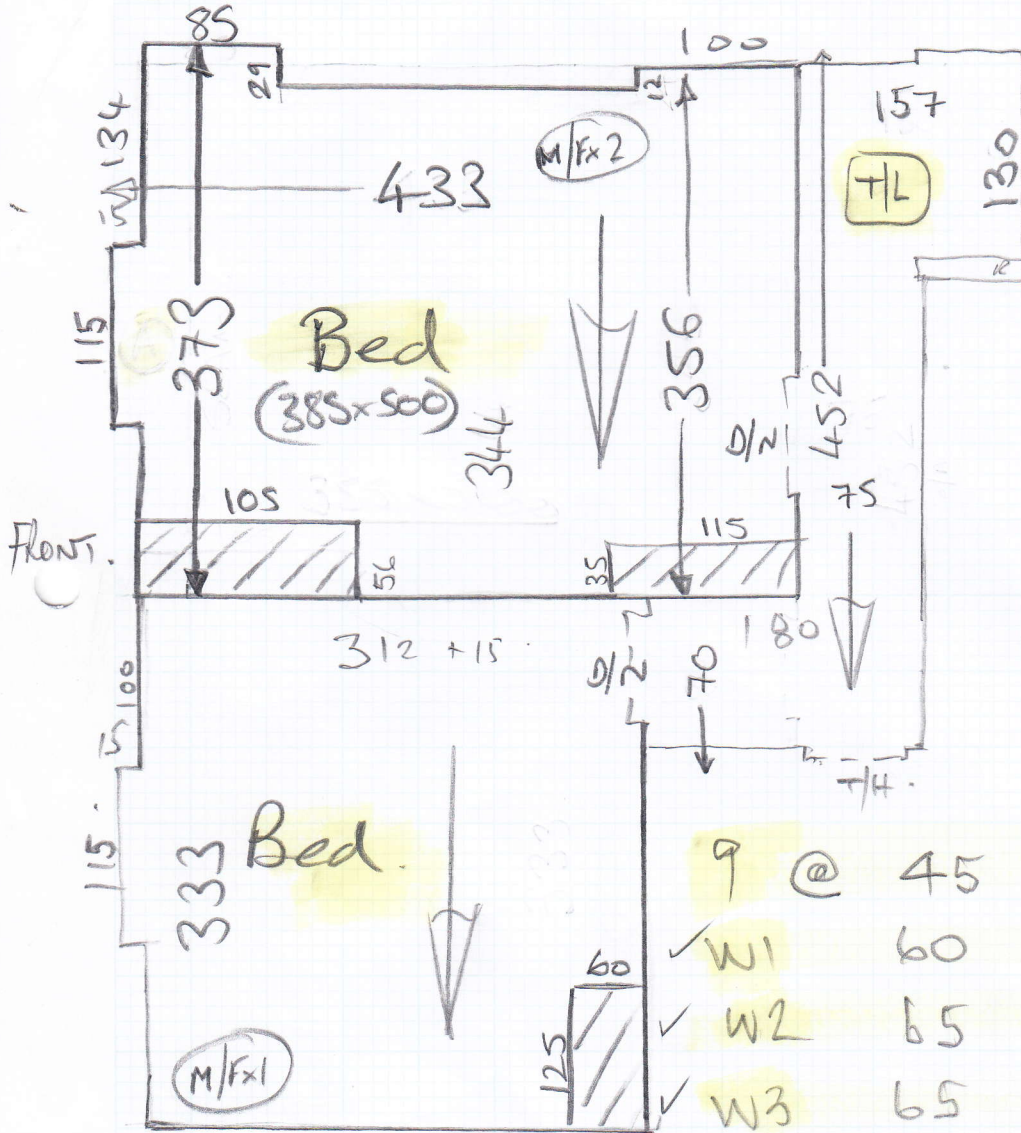 85
100
29
12
157
134
M/Fx2
T/L
130
433
115
373
Bed
356
(385x500)
344
D/2
452
75
105
115
FRONT.
56
35
312 +15
D/2
180
70
100
T/H
115
333
Bed.
9 @ 45
60
W1 60
W2 65
125
M/Fx1
W3 65